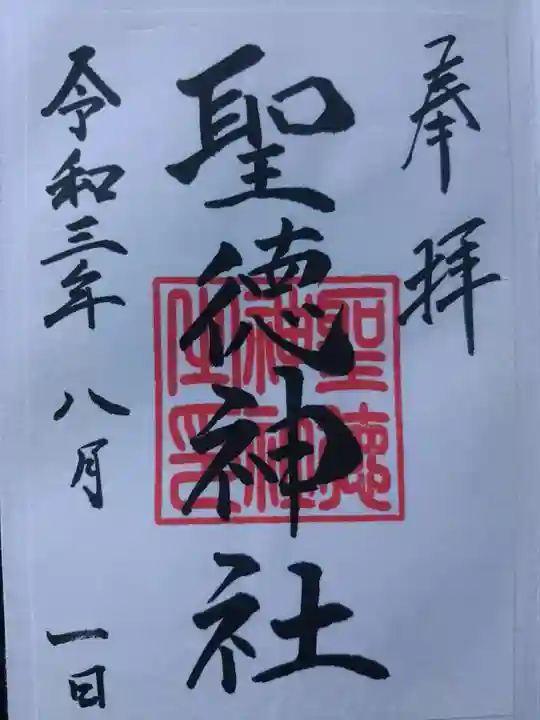 奉拝
聖徳神社
聖徳
神社
之印
令和三年 八月 一日